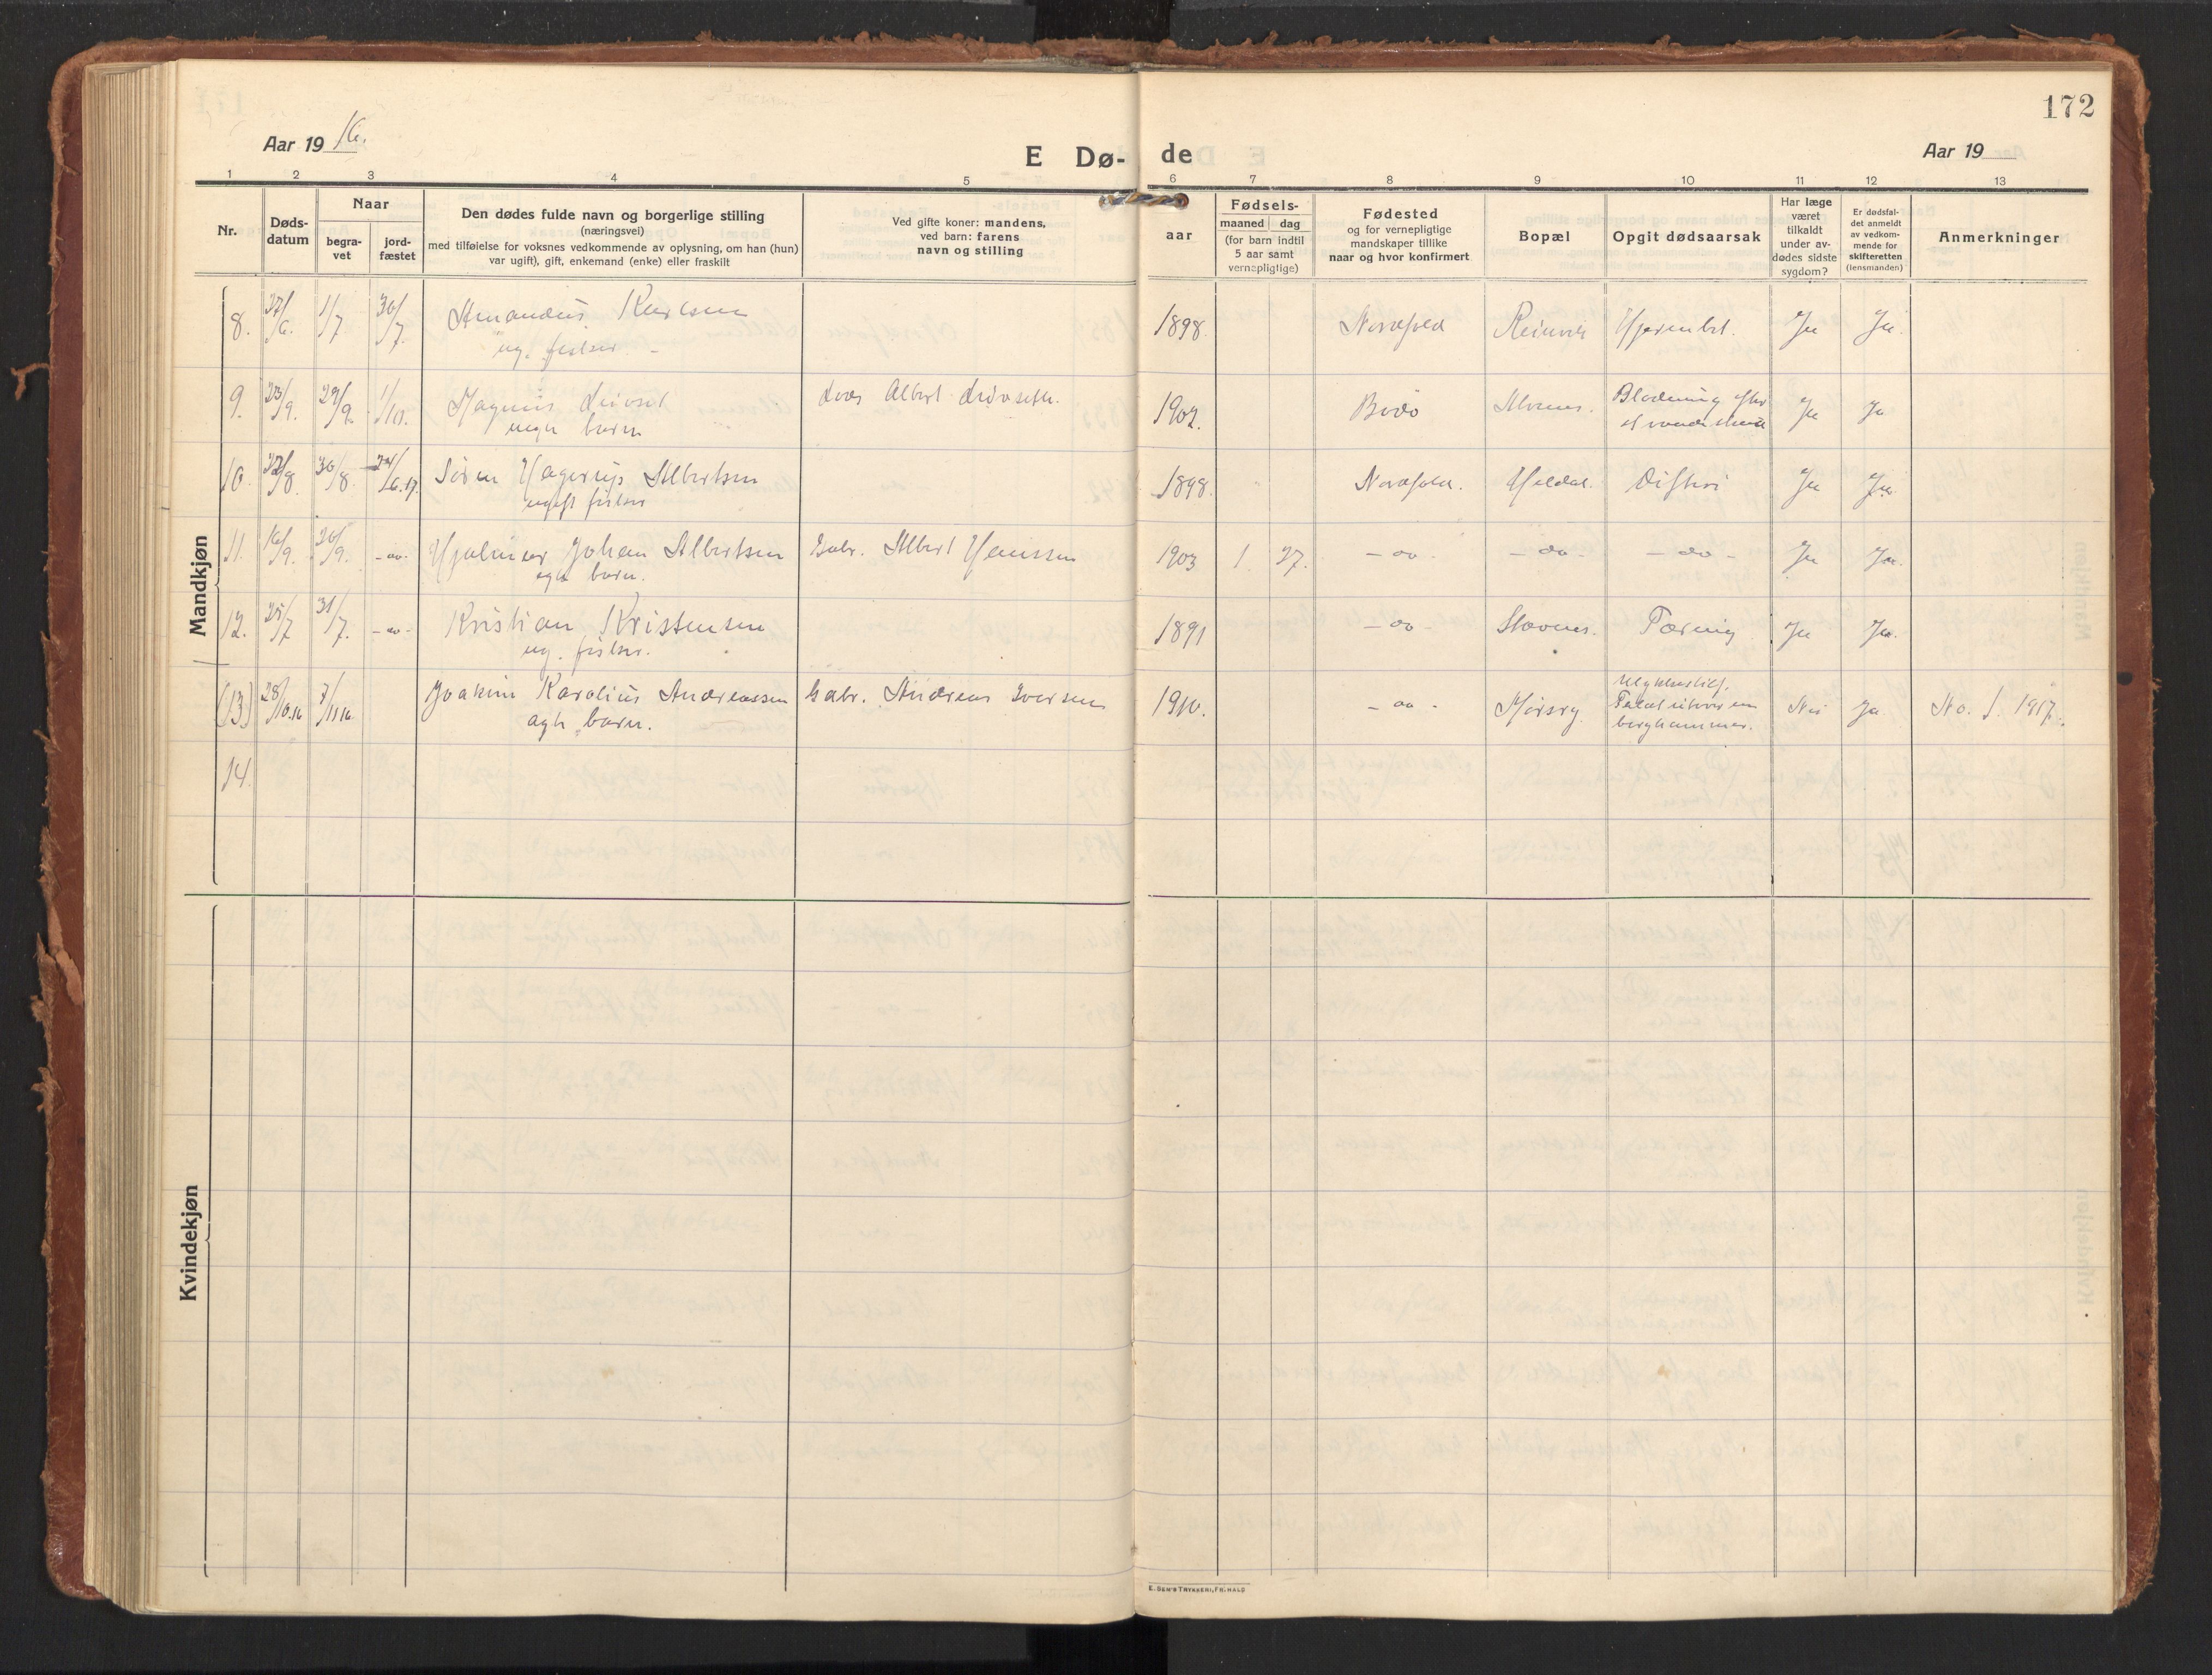 172
Aar 19 16.
E Dø- de
Aar 19
1 2 3 4 5 6 7 8 9 10 11 12 13
Nr.
Døds-
datum
Naar
begra-
vet
jord-
fæstet
Den dødes fulde navn og borgerlige stilling
(næringsvei)
med tilføielse for voksnes vedkommende av oplysning, om han (hun)
var ugift), gift, enkemand (enke) eller fraskilt
Ved gifte koner: mandens,
ved barn: farens
navn og stilling
Fødsels-
aar
maaned dag
(for barn indtil
5 aar samt
vernepligtige)
Fødested
og for vernepligtige
mandskaper tillike
naar og hvor konfirmert
Bopæl
Opgit dødsaarsak
Har læge
været
tilkaldt
under av-
dødes sidste
sygdom?
Er dødsfal-
det anmeldt
av vedkom-
mende for
skifteretten
(lensmanden)
Anmerkninger
Mandkjøn
8. 27/6. 1/7 30/7. Amandus 1898. Nordfold Ja Ja.
ug. fisker
9. 23/9. 29/9. 1/10. Magnus 1902. Bodø Ja Ja
barn
10. 30/8. 24/6.17. Søren Hagerup Albertsen 1898. Nordfold. Heldal. Difteri Ja Ja.
ugift fisker
11. 16/9. 20/9. -do- Hjalmar Johan Albertsen Gabr. Albert Hanssen 1903 1. 27. -do- -do- -do- Ja Ja.
egte barn.
12. 25/7 31/7. -do- Kristian Kristensen 1891 -do- Tæring Ja Ja.
ug. fisker.
(13) 28/10.16 7/11 16. Joakim Karolius Andreassen Gabr. Andreas Iversen 1910. -do- Mørsry Nei Ja No. 1 1917.
Ulykkestilf.
Faldt utover en
berghammer.
egte barn.
14.
Kvindekjøn
E. SEM'S TRYKKERI, FR.HALD